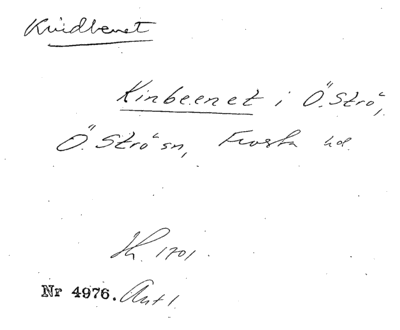 Kindbenet
Kinbeenet i Ö. Strö,
Ö. Strö sn, Frosta hd.
Jb. 1701.
Nr 4976. Avt 1.